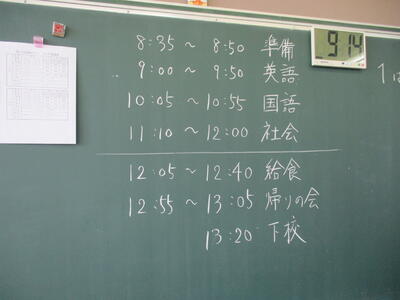 8:35 ～ 8:50 準備
9:00 ～ 9:50 英語
10:05 ～ 10:55 国語
11:10 ～ 12:00 社会
12:05 ～ 12:40 給食
12:55 ～ 13:05 帰りの会
13:20 下校
9 14
1は